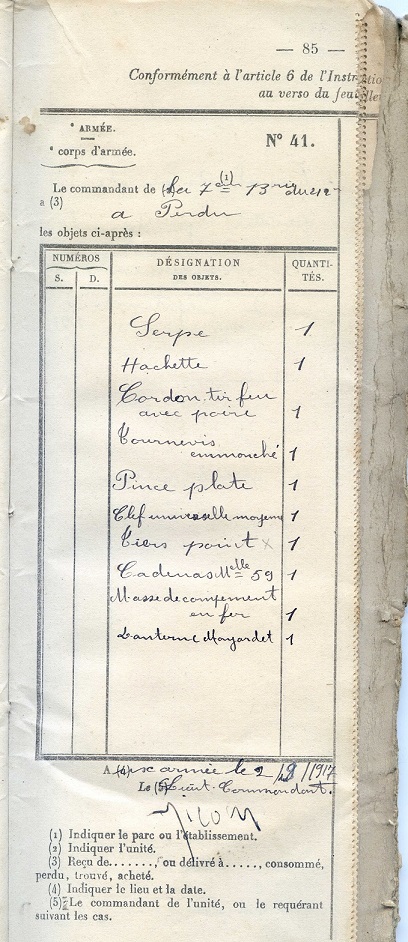 — 85 —
Conformément à l'article 6 de l'Instruction
au verso du feuillet
e ARMÉE.
e corps d'armée.
N° 41.
Le commandant de (1) la 7e Brie du 212
a (3) a Perdu
les objets ci-après :
NUMÉROS
S. D.
DÉSIGNATION
DES OBJETS.
QUANTI-
TÉS.
Serpe 1
Hachette 1
Cordon tir feu
avec poire 1
Tournevis
emmonché 1
Pince plate 1
Clef universelle moyenne 1
Tiers point x 1
Cadenas Mlle 59 1
Masse de compement
en fer 1
Lanterne Mayardet 1
A (4) aux armée le 2 /1917
Le (5) Lieut. Commandant.
(1) Indiquer le parc ou l'établissement.
(2) Indiquer l'unité.
(3) Reçu de......., ou délivré à....., consommé,
perdu, trouvé, acheté.
(4) Indiquer le lieu et la date.
(5) Le commandant de l'unité, ou le requérant
suivant les cas.